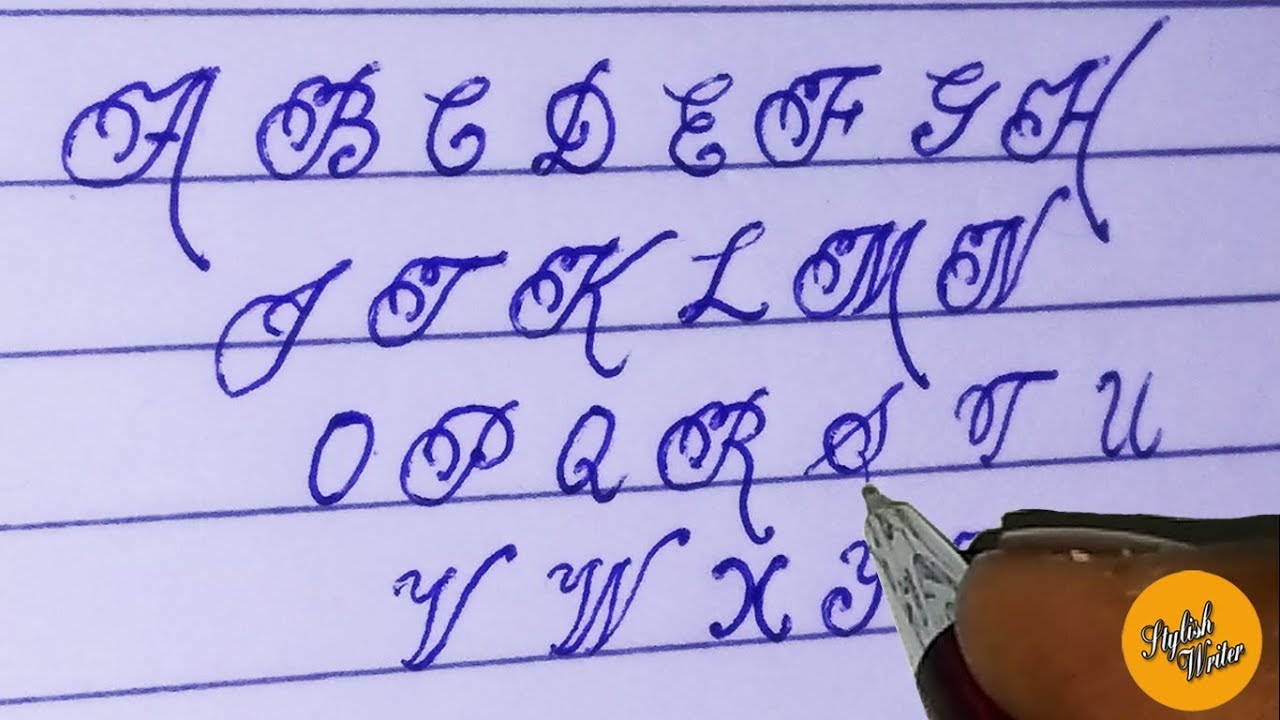 A B C D E F G H
I J K L M N
O P Q R S T U
V W X Y
Stylish
Writer